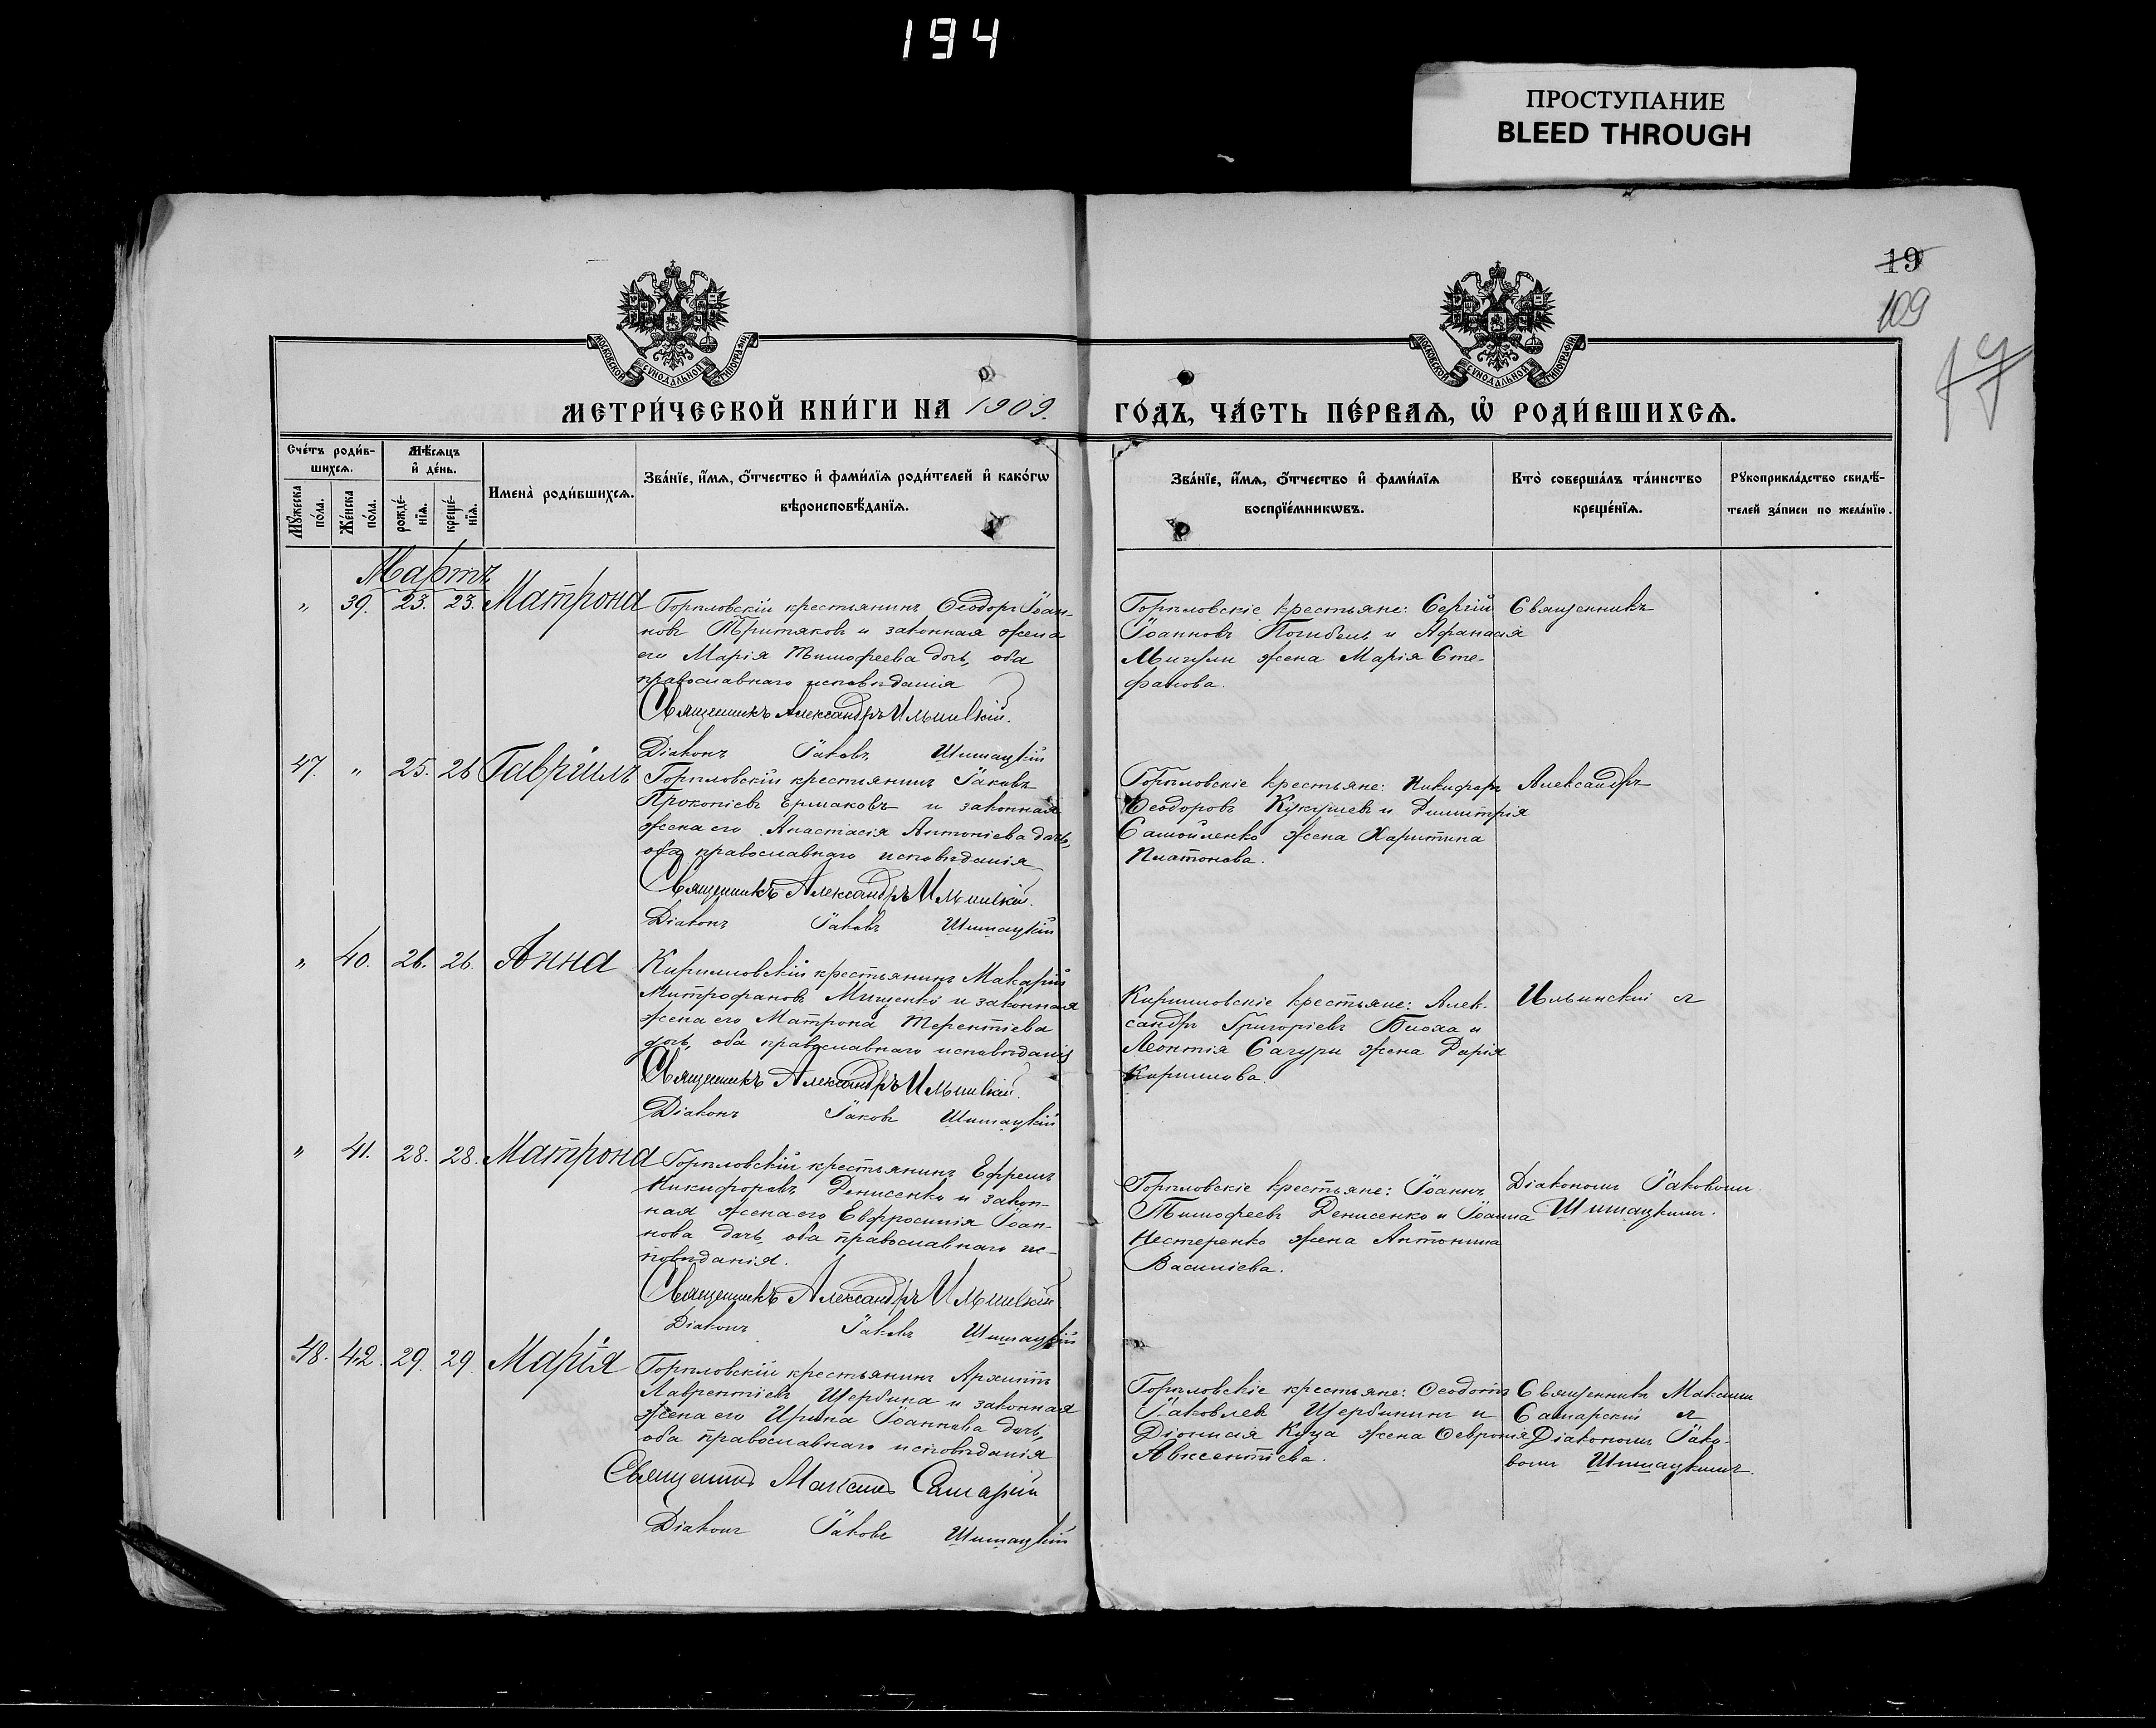 194
ПРОСТУПАНИЕ
BLEED THROUGH
19
109
17
МОСКОВСКОЙ СѴНОДАЛЬНОЙ ТИПОГРАФІИ
МОСКОВСКОЙ СѴНОДАЛЬНОЙ ТИПОГРАФІИ
МЕТРИ́ЧЕСКОЙ КНИ́ГИ НА 1909.
ГО́ДЪ, ЧА́СТЬ ПЕ́РВАѦ, Ѡ҆ РОДИ́ВШИХСѦ.
Сче́тъ роди́в-
шихсѧ.
Мѣ́сѧцъ
и҆ де́нь.
Мꙋ́жеска
по́ла.
Же́нска
по́ла.
рожде́-
нїѧ.
креще́-
нїѧ.
Имена̀ роди́вшихсѧ.
Зва́нїе, и҆́мѧ, ѻ҆́тчество и҆ фами́лїѧ роди́телей и҆ како́гѡ
вѣроисповѣ́данїѧ.
Зва́нїе, и҆́мѧ, ѻ҆́тчество и҆ фами́лїѧ
воспрїе́мникѡвъ.
Кто̀ соверша́лъ та́инство
креще́нїѧ.
Рꙋкоприкла́дство свидѣ́-
телей за́писи по жела́нїю.
Мартъ
" 39. 23. 23. Матрона
Горпловскій крестьянинъ Ѳеодоръ Іоан-
новъ Притяковъ и законная жена
его Марія Тимофеева дочь, оба
православнаго исповѣданія
Священникъ Александръ Ильинскій.
Діаконъ Іаковъ Шишацкій
Горпловскіе крестьяне: Сергій
Іоанновъ Погибель и Афанасія
Мигули жена Марія Сте-
фанова.
Священникъ
47. " 25. 26 Гавріилъ
Горпловскій крестьянинъ Іаковъ
Прокопіевъ Ермаковъ и законная
жена его Анастасія Антоніева дочь,
оба православнаго исповѣданія
Священникъ Александръ Ильинскій.
Діаконъ Іаковъ Шишацкій
Горпловскіе крестьяне: Никифоръ
Ѳеодоровъ Кукушевъ и Димитрія
Самойленко жена Харитина
Платонова.
Александръ
" 40. 26. 26. Анна
Кирилловскій крестьянинъ Макарій
Митрофановъ Мищенко и законная
жена его Матрона Терентіева
дочь, оба православнаго исповѣданія
Священникъ Александръ Ильинскій.
Діаконъ Іаковъ Шишацкій
Кирилловскіе крестьяне: Алек-
сандръ Григоріевъ Блоха и
Леонтія Сагури жена Дарія
Кириллова.
Ильинскій съ
" 41. 28. 28. Матрона
Горпловскій крестьянинъ Ефремъ
Никифоровъ Денисенко и закон-
ная жена его Евфросинія Іоан-
нова дочь, оба православнаго ис-
повѣданія.
Священникъ Александръ Ильинскій
Діаконъ Іаковъ Шишацкій
Горпловскіе крестьяне: Іоаннъ
Тимофеевъ Денисенко и Іоанна
Нестеренко жена Антонина
Василіева.
Діакономъ Іаковомъ
Шишацкимъ.
48. 42. 29. 29 Марія
Горпловскій крестьянинъ Архиппъ
Лаврентіевъ Щербина и законная
жена его Ирина Іоаннова дочь,
оба православнаго исповѣданія
Священникъ Максимъ Самарскій
Діаконъ Іаковъ Шишацкій
Горпловскіе крестьяне: Ѳеодотъ
Іаковлевъ Щербининъ и
Діонисія Куца жена Ѳевронія
Авксентіева.
Священникъ Максимъ
Самарскій съ
Діакономъ Іако-
вомъ Шишацкимъ.